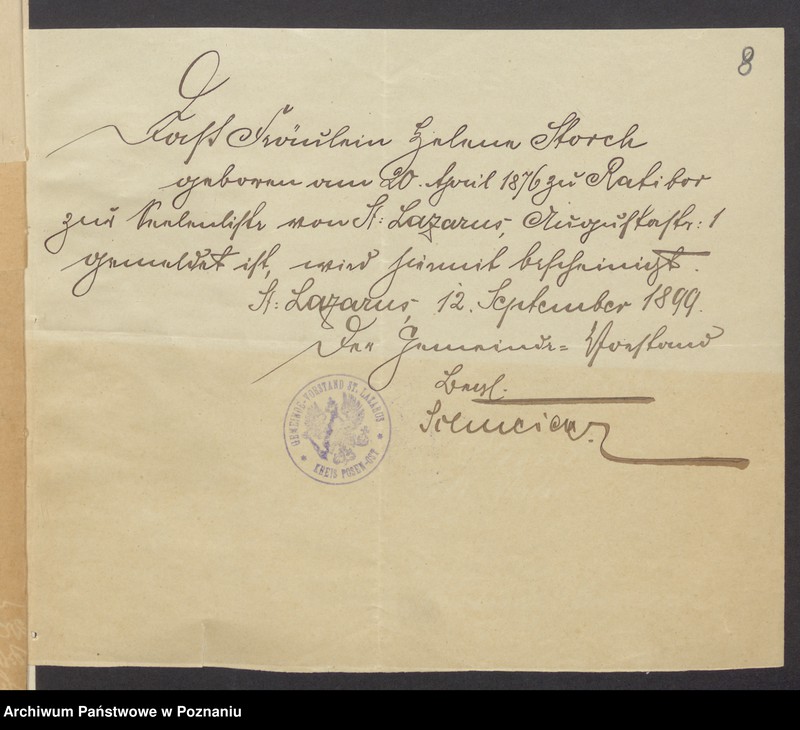 8
Daß Fräulein Helene Storch
geboren am 20. April 1876 zu Ratibor
zur Seelenliste von St: Lazarus, Augustastr: 1
gemeldet ist, wird hiermit bescheinigt.
St: Lazarus, 12. September 1899.
Der Gemeinde= Vorstand
GEMEINDE-VORSTAND ST. LAZARUS
KREIS POSEN-OST
Archiwum Państwowe w Poznaniu